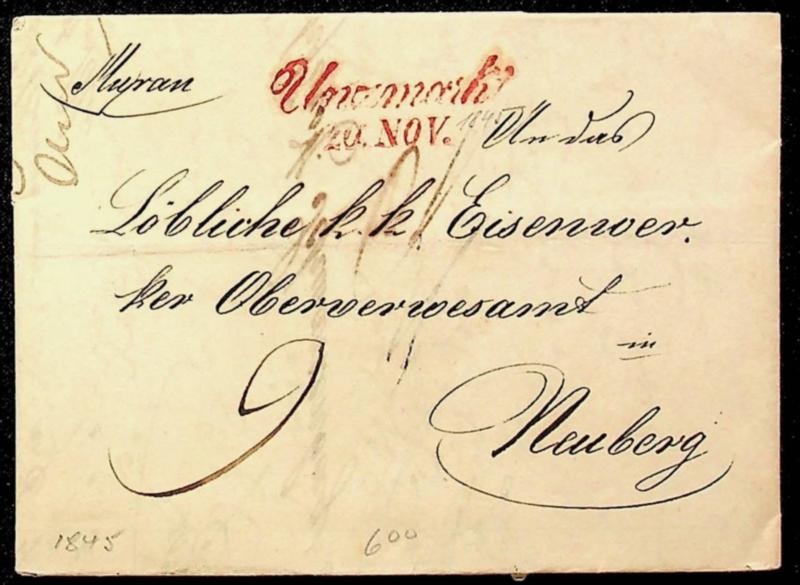 Muran
Unzmarkt
20. NOV.
1845
An das
Löbliche k. k. Eisenwer.
ker Oberverwesamt
in
Neuberg
9
1845
600